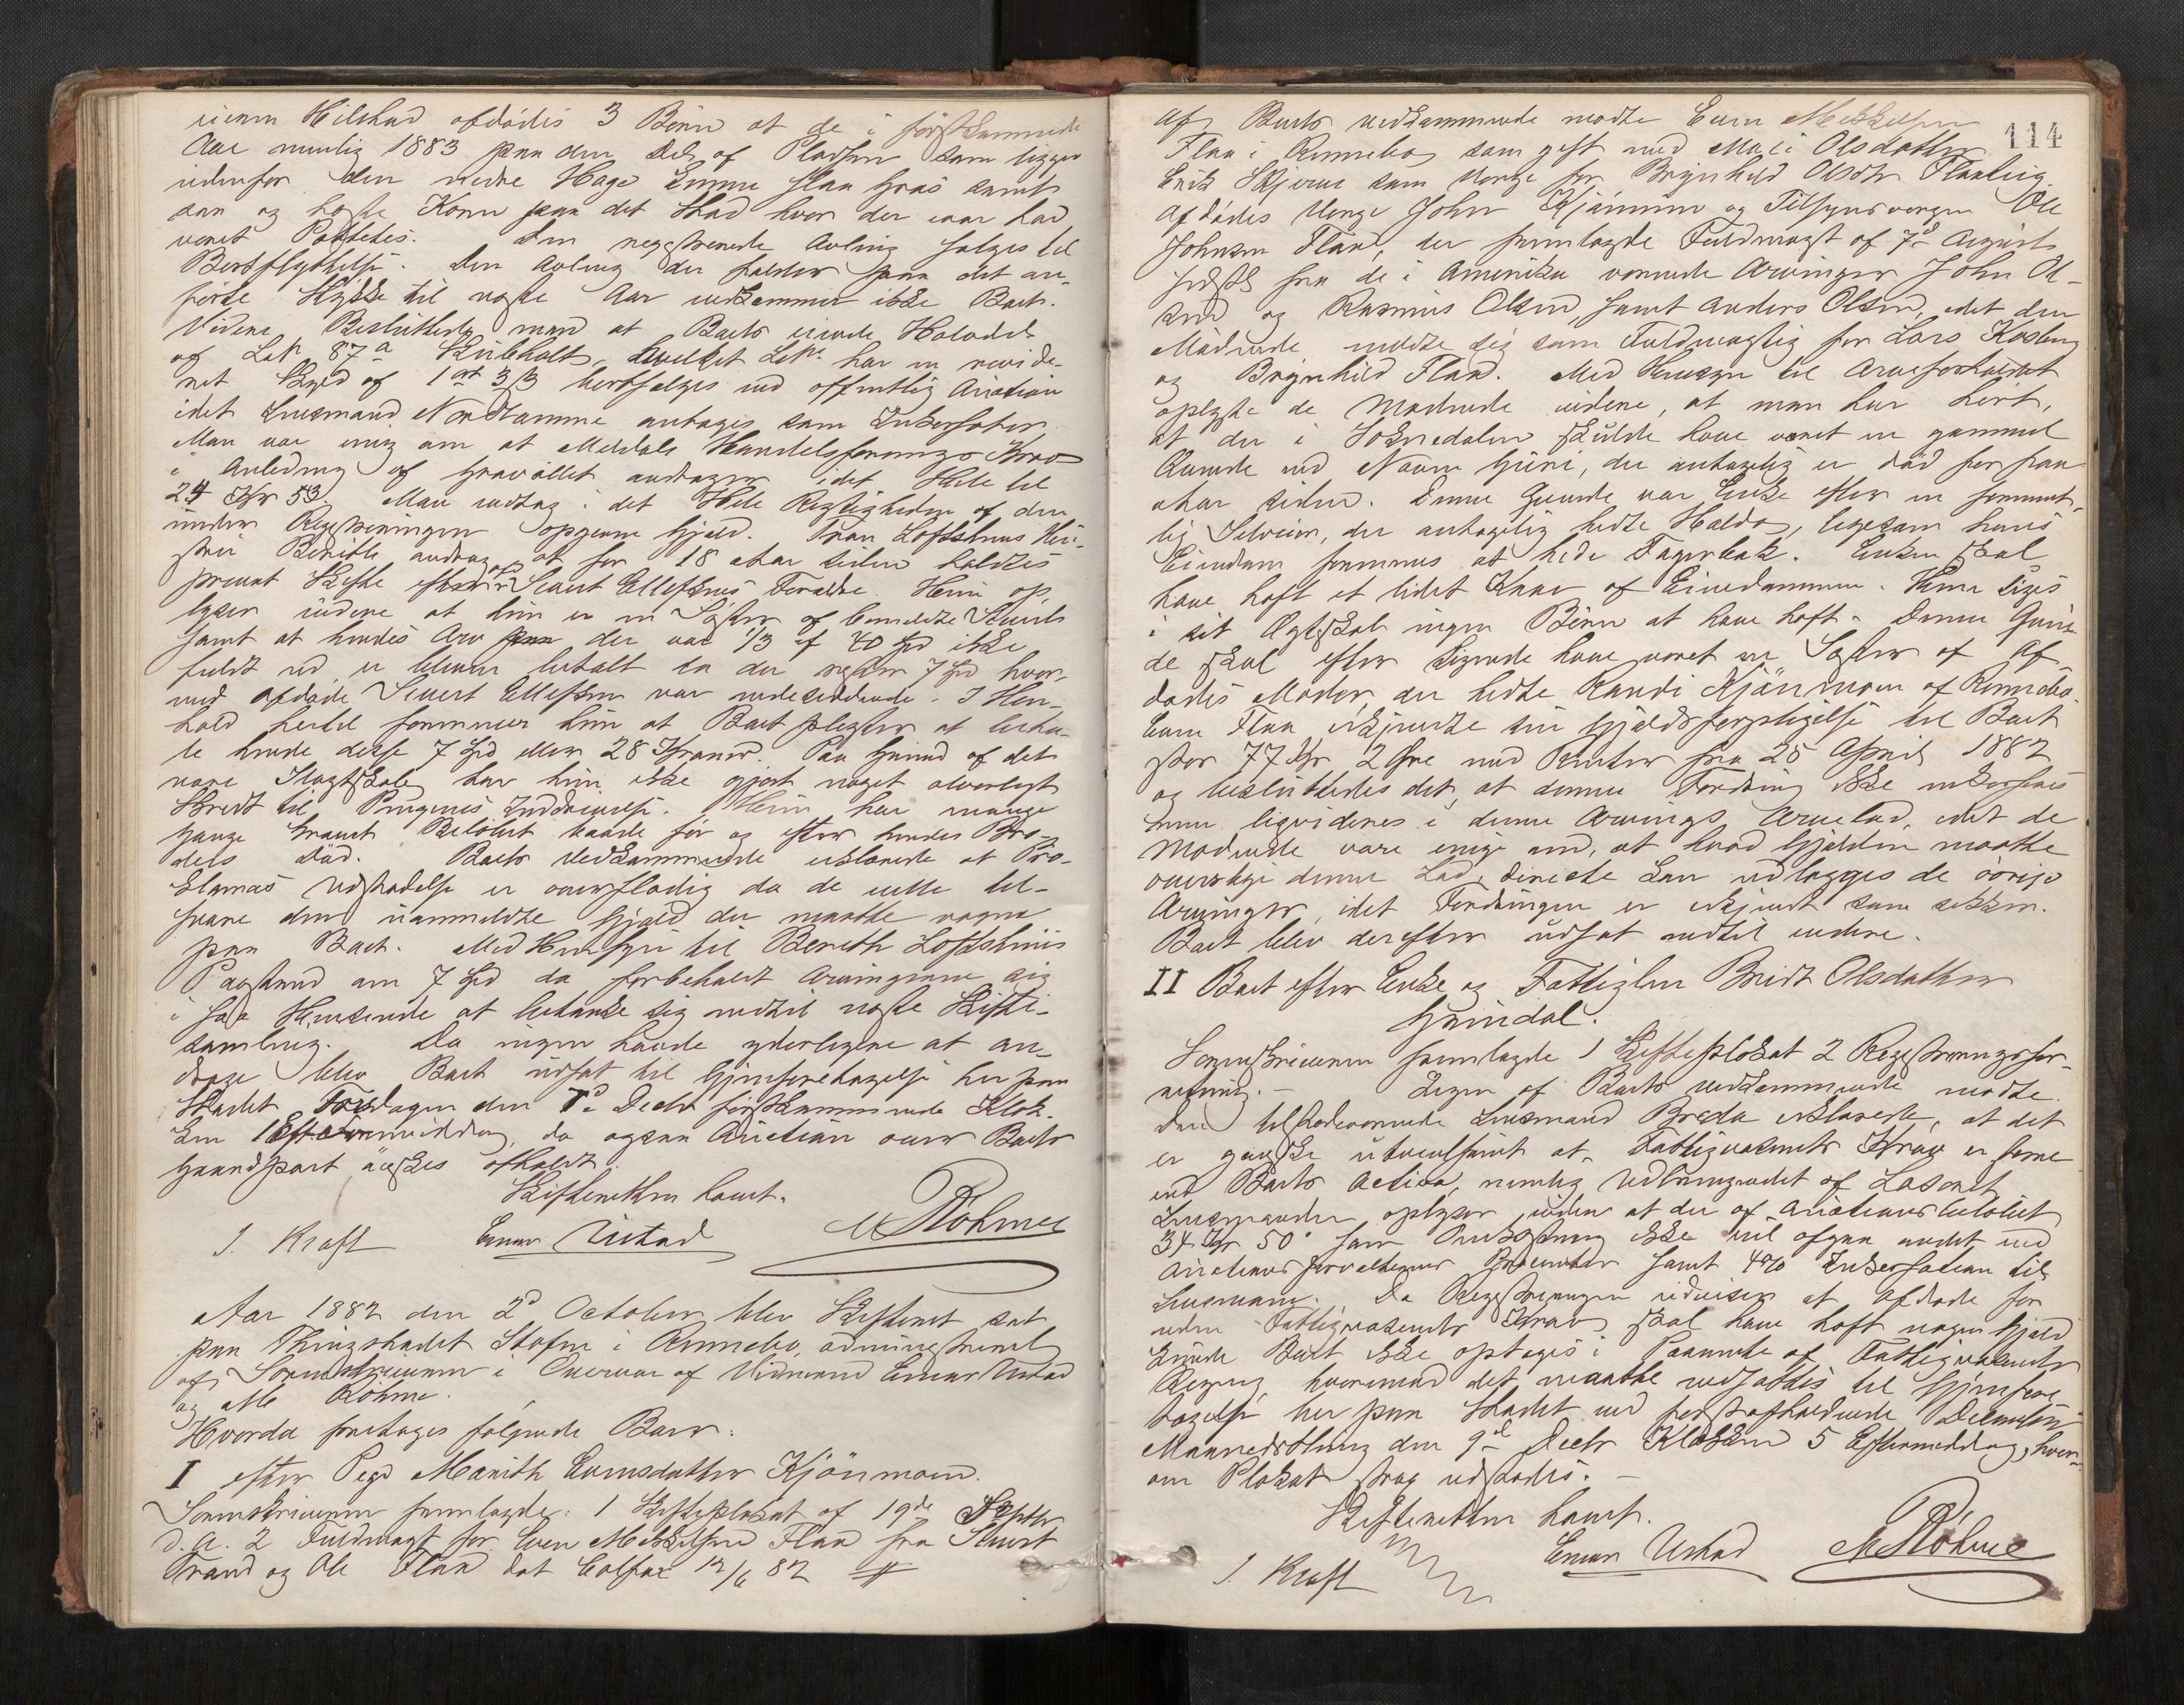 Hilstad afdødes 3 Børn at de i førstkommende
Aar nemlig 1883 paa den Del af Pladsen som ligger
udenfor den nedre Hage kunne slaa Græs samt
saa og høste Korn paa det Sted hvor der var har
været Potetes. Den registrerede Avling sælges til
Bortflyttelse. Den Avling der falder paa det an-
førte Stykke til næste Aar vedkommer ikke Boet.
Videre Besluttede man at Boets eiende Halvdel
af LNr 87a Kulholt, hvilket LNr har en revide-
ret Skyld af 1 ort 3 ß bortsælges ved offentlig Auction
idet Lensmand Nordtømme antages som Inkassator.
Man var enig om at Meldals Handelsforenings Krav
i Anledning af Gravøllet andrager idet Hele til
24 Kr 53. Man vedtog i det Hele Rigtigheden af den
under Registreringen opgivne Gjæld. Fran Loftshuus
Berith androg at for 18 Aar siden holdtes
privat Skifte efter Sivert Ellefsens Forældre. Hun op-
lyser videre at hun er en Søster af bemeldte Sivert
samt at hendes Arv der var 1/3 af 40 Spd ikke
fuldt ud er bleven betalt da der rester 7 Spd hvor-
med afdøde Sivert Ellefsen var indesiddende. I Hen-
hold hertil formener hun at Boet pligter at beta-
le hende disse 7 Spd eller 28 Kroner. Paa Grund af det
nære Slægtskab har hun ikke gjort noget alvorligt
Skridt til Pengenes Inddrivelse. Hun har mange
Gange krævet Beløbet baade før og efter hendes Bro-
ders Død. Boets Vedkommende erklærede at Pro-
klamas Udstedelse er overflødig da de ville til-
svare den uanmeldte Gjæld der maatte
paa Boet. Med Hensyn til Berith Loftshuus
Paastand om 7 Spd da forbeholdt Arvingerne sig
i saa Henseende at betænke sig indtil næste Skifte-
samling. Da ingen havde yderligere at an-
drage blev Boet udsat til Gjenforetagelse her paa
Stedet Torsdagen den 7de Decbr førstkommende Klok-
ken 1 Eftermiddag, da ogsaa Auction over Boets
Gaardpart æskes afholdt.
Skifteretten hævet.
J. Kraft Einar Ustad M Röhme
Aar 1882 den 2d October blev Skifteret sat
paa Thingstedet Stofne i Rennebo, administreret
af Sorenskriveren i Overvær af Vidnerne Einar Ustad
og M Röhme.
Hvorda foretages følgende Boer:
I efter Pige Marith Evensdatter Kjönmoen.
Sorenskriveren fremlagde: 1 Skifteplakat af 19de Septbr
d.A. 2 Fuldmagt for Even Mikkelsen Flaa fra Sivert
Trand og Ole Flaa dat Colfax 12/6 82 #
114
Af Boets vedkommende mødte Even Mikkelsen
Flaa i Rennebo som gift med Mari Olsdatter
Erik Skjerve som Verge for Brynhild Olsdtr Flaalien
Afdødes Verge John Kjönmoen og Tilsynsvergen Ole
Johnsen Flaa, der fremlagde Fuldmagt af 7d August
sidstl fra de i Amerika værende Arvinger John Ol-
sen og Rasmus Olsen samt Anders Olsen, idet den
Mødende meldte sig som Fuldmægtig for Lars Kosberg
og Brynhild Flaa. Med Hensyn til Arveforholdet
oplyste de Mødende videre, at man har hørt,
at der i Soknedalen skulde have været en gammel
Kvinde ved Navn Guri, der antagelig er død for faa
Aar siden. Denne Qvinde var Enke efter en forment-
lig Selveier, der antagelig hedte Haldo, ligesom hans
Eiendom formenes at hede Fagerbæk. Enken skal
have haft et lidet Kaar af Eiendommen. Hun siges
i sit Ægteskab ingen Børn at have haft. Denne Qvin-
de skal efter Sigende have været en Søster af Af-
dødes Moder, der hedte Randi Kjönmoen af Rennebo.
Even Flaa erkjendte sin Gjældsforpligtelse til Boet
stor 77 Kr 2 Øre med Renter fra 25 April 1882
og besluttedes det, at denne Fordring ikke inkasseres
men liqvideres i denne Arvings Arvelod, idet de
Mødende vare enige om, at hvad Gjælden maatte
overstige denne Lod, direkte kan udlægges de øvrige
Arvinger, idet Fordringen er erkjendt som sikker.
Boet blev derefter udsat indtil videre.
II Boet efter Enke og Fattiglem Bridt Olsdatter
Grindal.
Sorenskriveren fremlagde 1 Skifteplakat 2 Registreringsfor-
retning. Ingen af Boets vedkommende mødte.
Den tilstedeværende Lensmand Breda erklærede, at det
er ganske utvivlsomt at Fattigvæsenets Krav er større
end Boets Activa, nemlig Udbringendet af Løsøret
Lensmanden oplyser videre at der af Auctionsbeløbet
34 Kr 50 som Omkostning ikke vil afgaa andet end
Auctionsforvalterens Procenter samt 4% Inkassation til
Lensmand. Da Registreringen udviser at Afdøde for
uden Fattigvæsenets Krav skal have haft nogen Gjæld
kunde Boet ikke optages i Paavente af Fattigvæsenets
Regning hvorimod det maatte udsættes til Gjenfore-
tagelse her paa Stedet ved førstafholdende
Maanedsthing den 9de Decbr Klokken 5 Eftermiddag, hvor-
om Plakat strax udstedes.
Skifteretten hævet.
J. Kraft Einar Ustad M Röhme